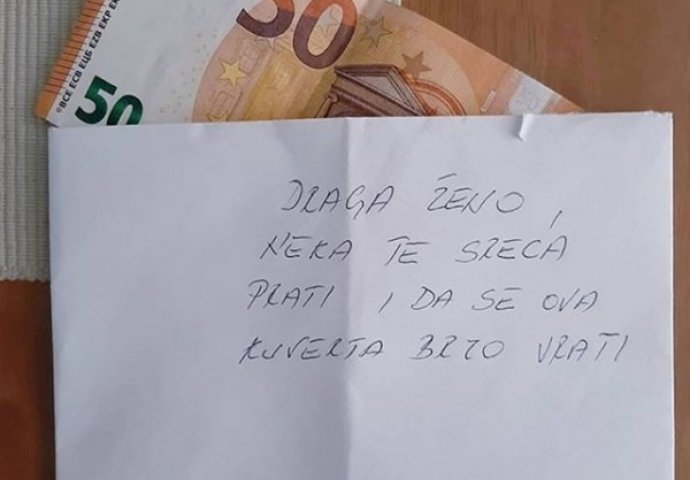 50
50
©BCE ECB ЕЦБ EZB EKP
DRAGA ŽENO,
NEKA TE SREĆA
PRATI I DA SE OVA
KUVERTA BRZO VRATI